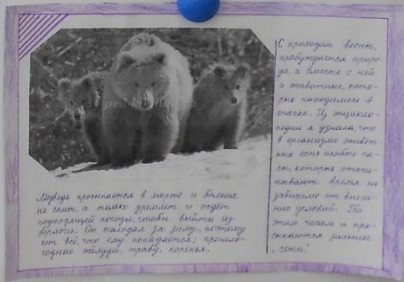 С приходом весны,
пробуждается приро-
да, а вместе с ней
и животные, кото-
рые находились в
спячке. Из энцикло-
педии я узнала, что
в организме живот-
ных есть особые ча-
сы, которые отсчи-
тывают время не
зависимо от внеш-
них условий. По
этим часам и про-
сыпаются зимние
"сони"
Медведь просыпается в марте и больше
не спит, а только дремлет и ждет
подходящей погоды, чтобы выйти из
берлоги. Он голодал за зиму, поэтому
ест всё, что ему попадается: прошло-
годние жёлуди, траву, коренья.